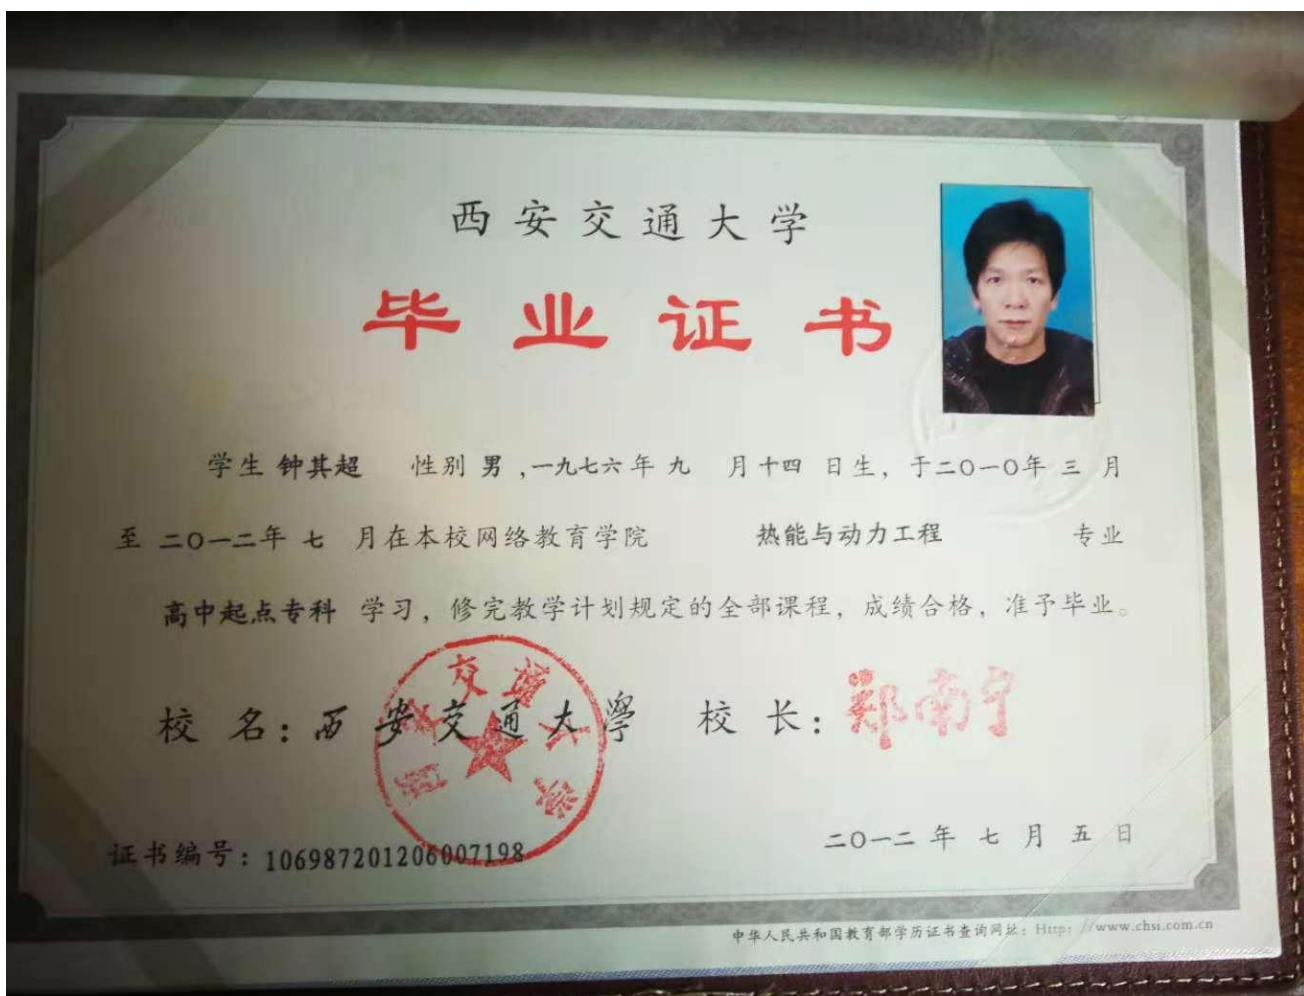 西安交通大学
毕业证书
学生 钟其超 性别 男 ,一九七六年 九 月十四 日生, 于二〇一〇年 三 月
至 二〇一二年 七 月在本校网络教育学院 热能与动力工程 专业
高中起点专科 学习, 修完教学计划规定的全部课程, 成绩合格, 准予毕业。
校 名: 西安交通大學 校 长: 郑南宁
西安交通大学
二〇一二 年 七 月 五 日
证书编号: 106987201206007198
中华人民共和国教育部学历证书查询网址: Http: //www.chsi.com.cn